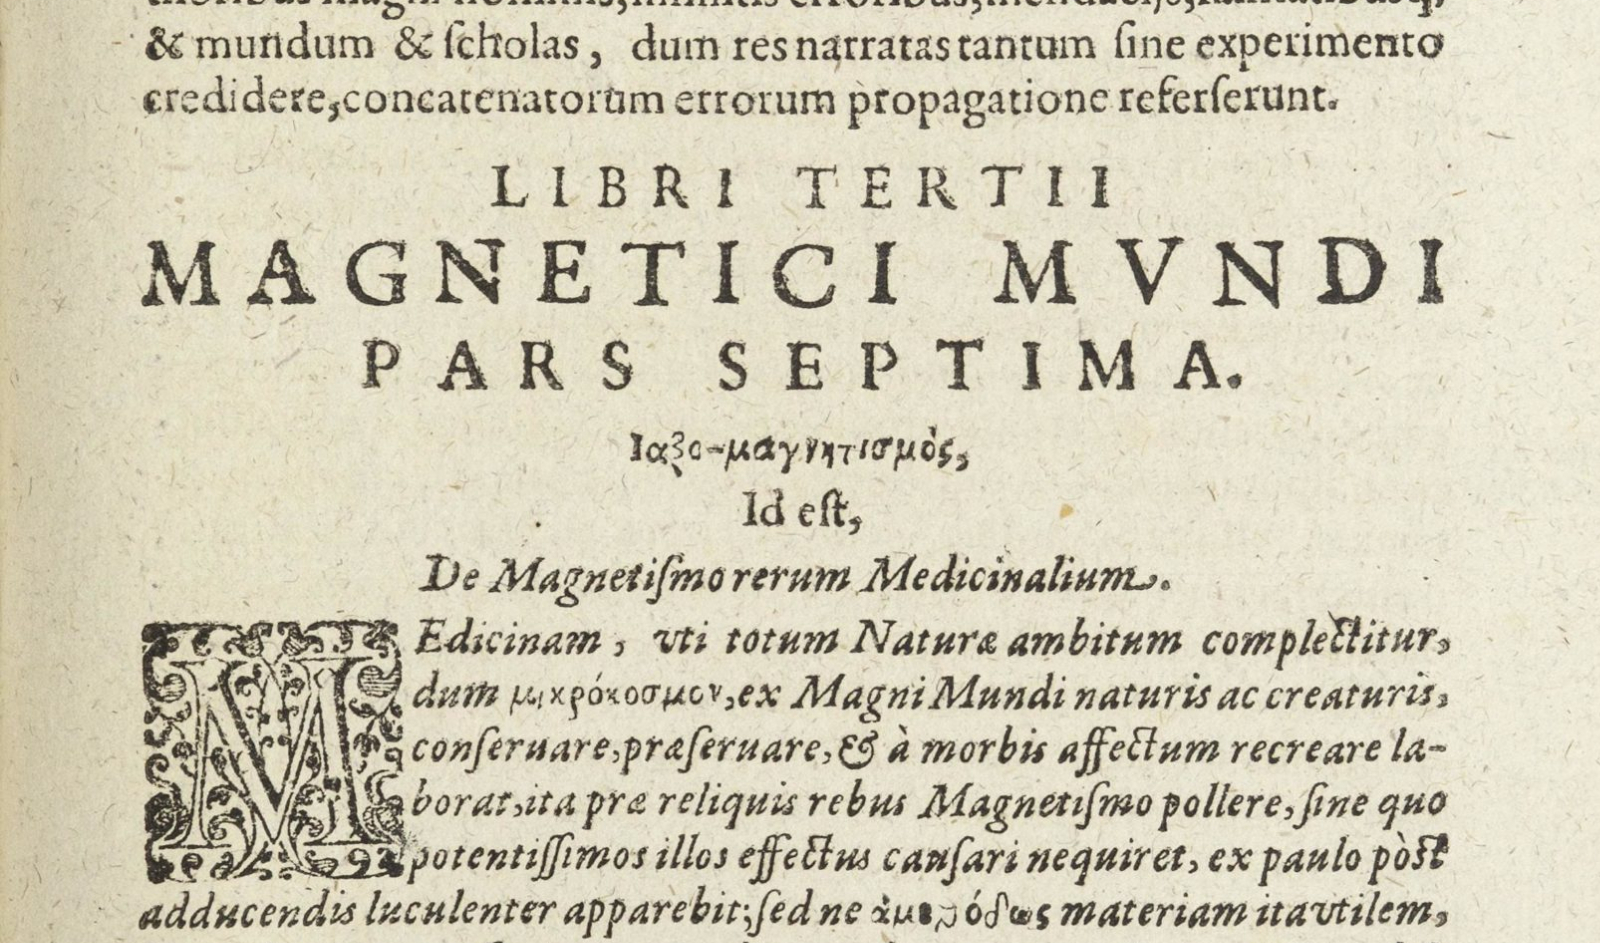 & mundum & ſcholas, dum res narratas tantum ſine experimento
credidere, concatenatorum errorum propagatione referſerunt.
LIBRI TERTII
MAGNETICI MVNDI
PARS SEPTIMA.
Ιαξο-μαγνητισμὸς,
Id eſt,
De Magnetiſmo rerum Medicinalium.
MEdicinam, vti totum Naturæ ambitum complectitur,
dum μικρόκοσμον, ex Magni Mundi naturis ac creaturis,
conſeruare, præſeruare, & à morbis affectum recreare la-
borat, ita præ reliquis rebus Magnetiſmo pollere, ſine quo
potentiſſimos illos effectus cauſari nequiret, ex paulo pòſt
adducendis luculenter apparebit; ſed ne materiam ita vtilem,